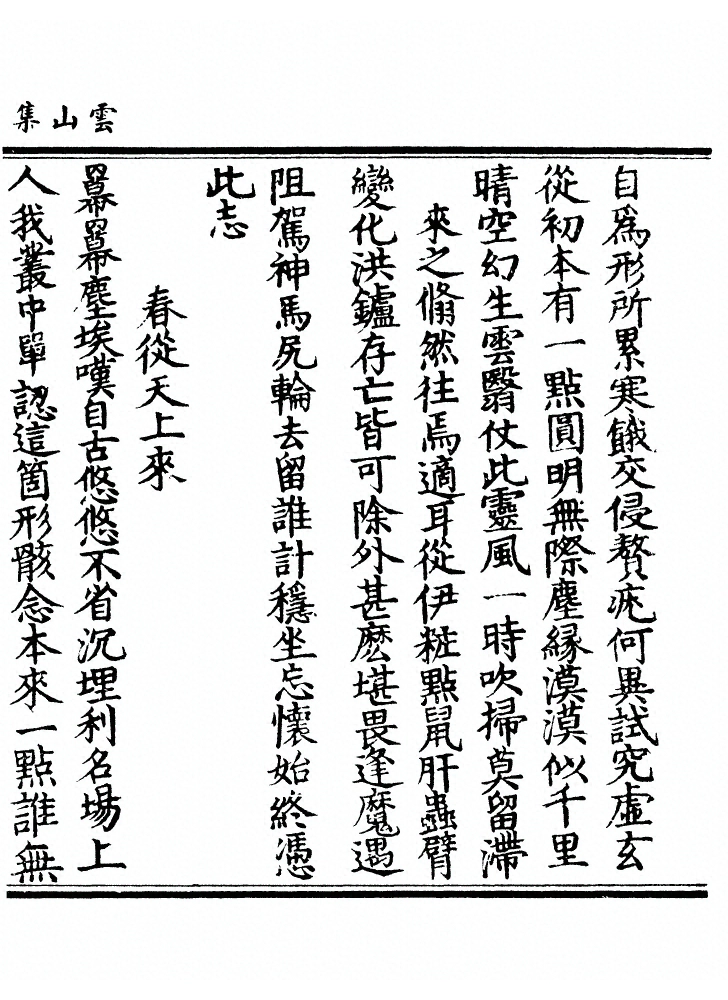 雲山集
自爲形所累寒餓交侵贅疣何異試究虛玄
從初本有一點圓明無際塵緣漠漠似千里
晴空幻生雲翳仗此靈風一時吹掃莫留滯
來之翛然往焉適耳從伊粧點鼠肝蟲臂
變化洪鑪存亡皆可除外甚麽堪畏逢魔遇
阻駕神馬尻輪去留誰計穩坐忘懷始終憑
此志
春從天上來
羃羃塵埃嘆自古悠悠不省沉埋利名場上
人我叢中單認這箇形骸念本來一點誰無